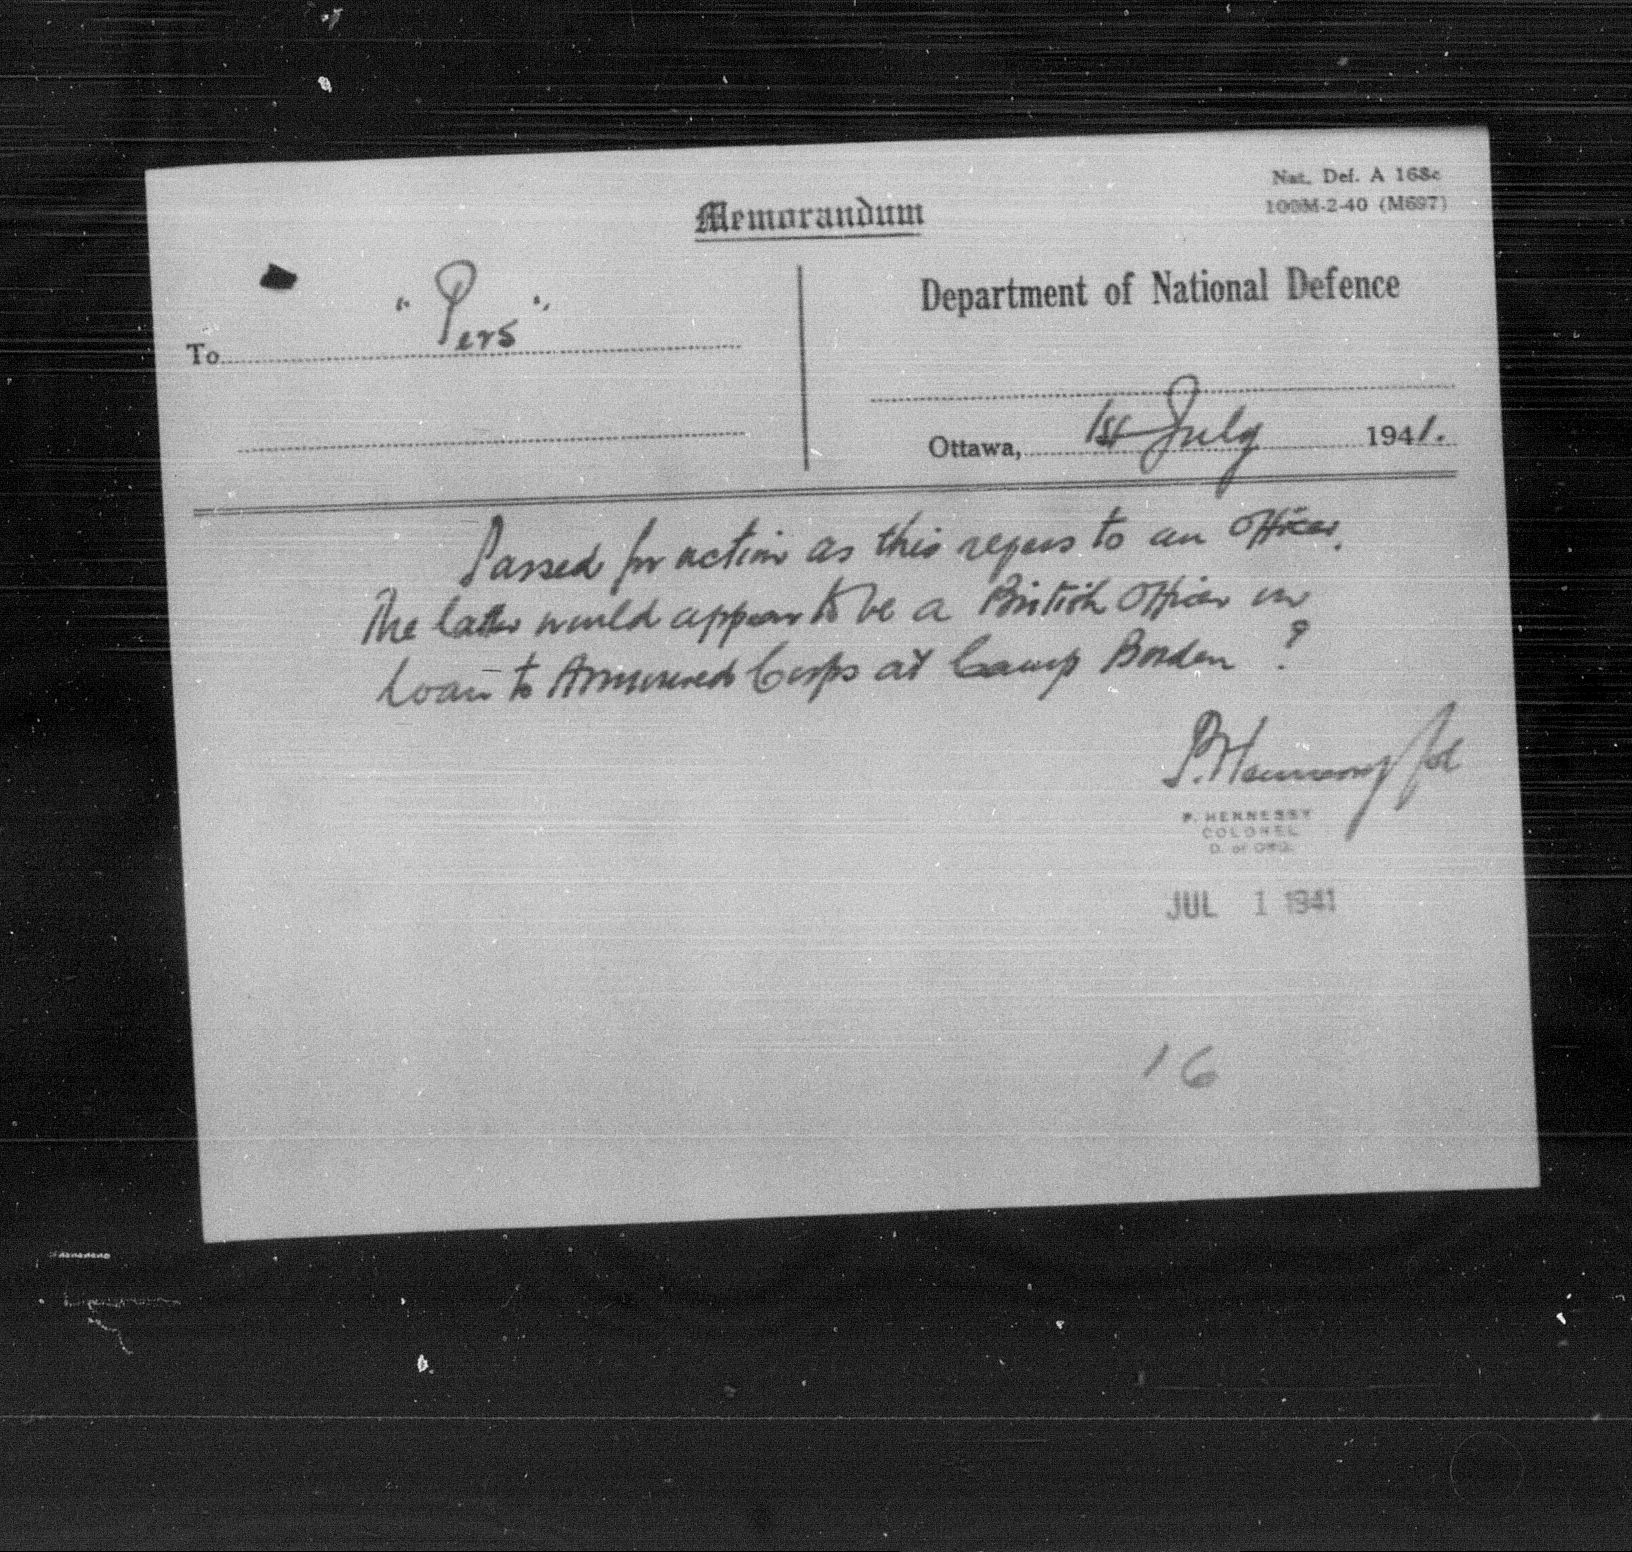 Nat. Def. A 168c
100M-2-40 (M697)
Memorandum
To "Pers"
Department of National Defence
Ottawa, 1st July 1941.
Passed for action as this refers to an Officer.
The latter would appear to be a British Officer on
Loan to Armoured Corps at Camp Borden ?
P. Hennessy Col
P. HENNESSY
COLONEL
D. of ORG.
JUL 1 1941
16